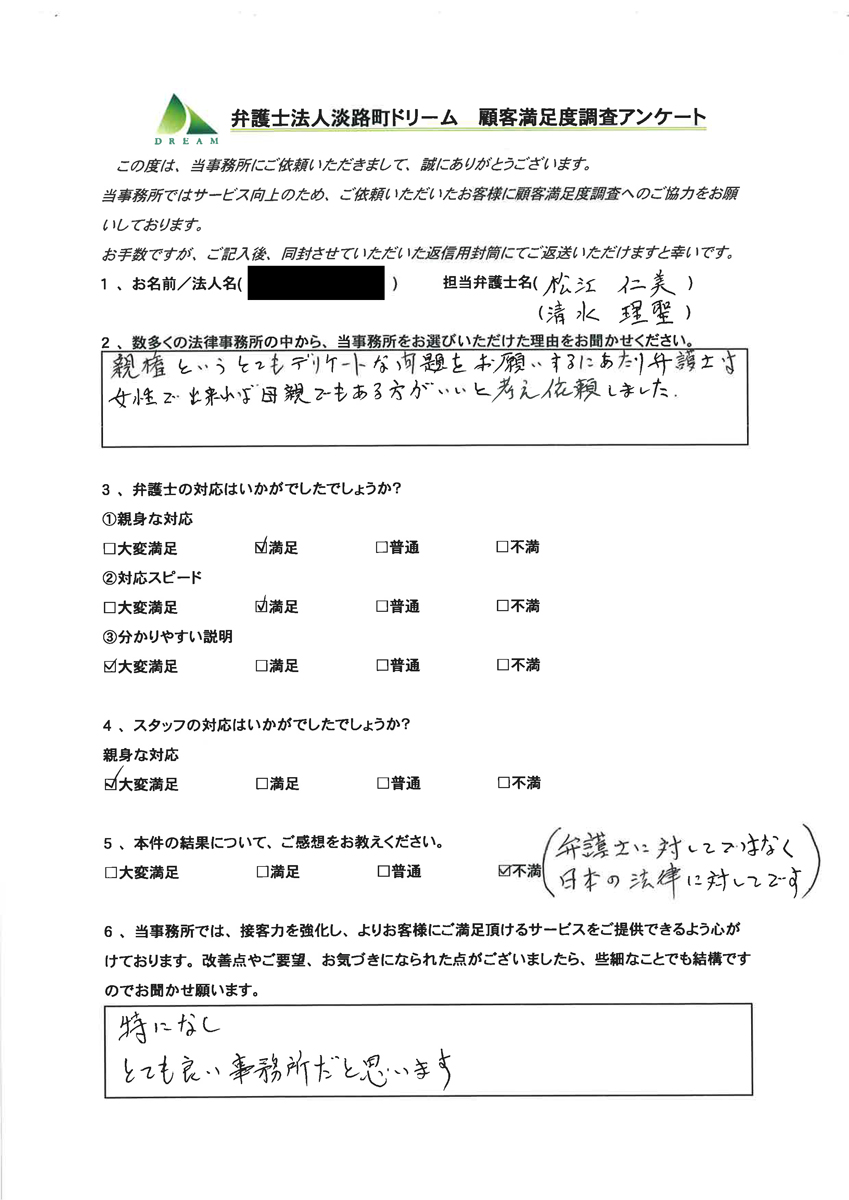 DREAM
弁護士法人淡路町ドリーム 顧客満足度調査アンケート
この度は、当事務所にご依頼いただきまして、誠にありがとうございます。
当事務所ではサービス向上のため、ご依頼いただいたお客様に顧客満足度調査へのご協力をお願
いしております。
お手数ですが、ご記入後、同封させていただいた返信用封筒にてご返送いただけますと幸いです。
1、お名前／法人名( ) 担当弁護士名( 松江 仁美 )
(清水 理聖 )
2、数多くの法律事務所の中から、当事務所をお選びいただけた理由をお聞かせください。
親権というとてもデリケートな問題をお願いするにあたり弁護士は
女性で出来れば母親でもある方がいいと考え依頼しました.
3、弁護士の対応はいかがでしたでしょうか?
①親身な対応
□大変満足 ☑満足 □普通 □不満
②対応スピード
□大変満足 ☑満足 □普通 □不満
③分かりやすい説明
☑大変満足 □満足 □普通 □不満
4、スタッフの対応はいかがでしたでしょうか?
親身な対応
☑大変満足 □満足 □普通 □不満
5、本件の結果について、ご感想をお教えください。
□大変満足 □満足 □普通 ☑不満
(弁護士に対してではなく
日本の法律に対してです)
6、当事務所では、接客力を強化し、よりお客様にご満足頂けるサービスをご提供できるよう心が
けております。改善点やご要望、お気づきになられた点がございましたら、些細なことでも結構です
のでお聞かせ願います。
特になし
とても良い事務所だと思います